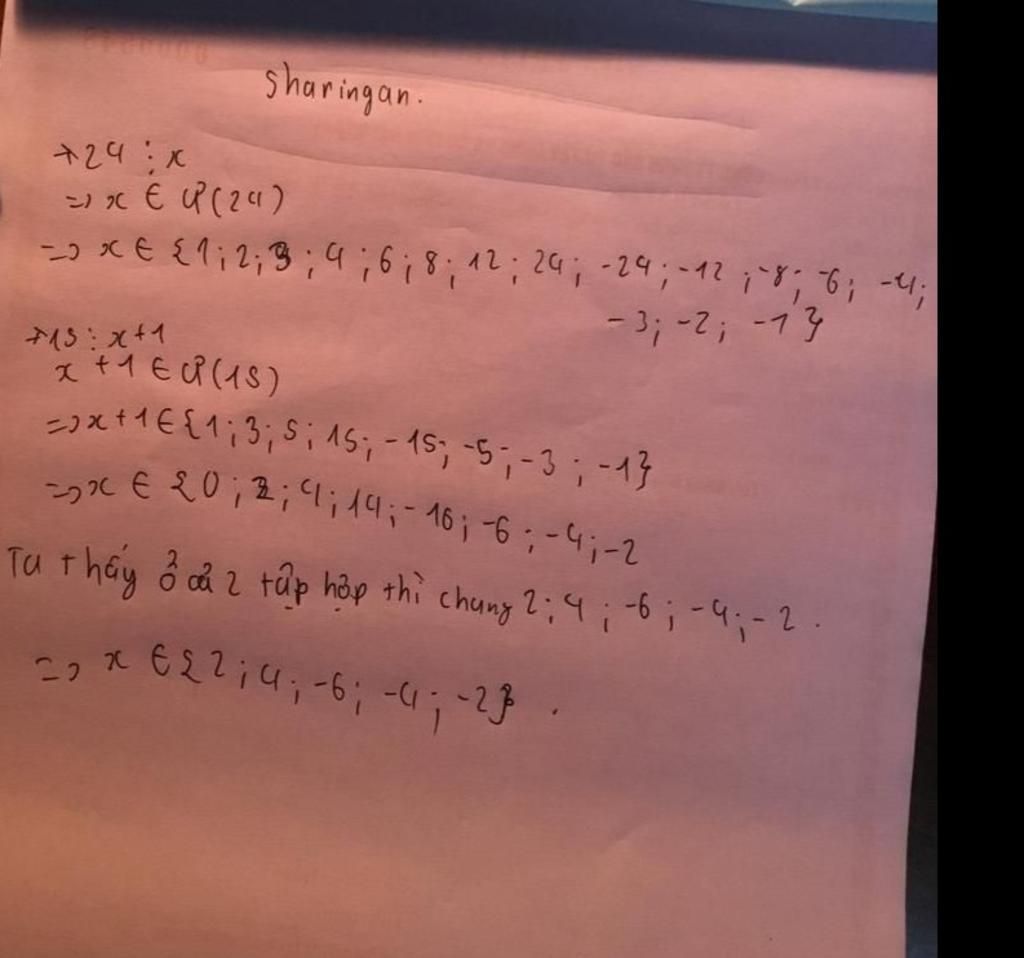 sharingan.
→24 ⋮ x
=> x ∈ Ư(24)
=> x ∈ {1; 2; 3; 4; 6; 8; 12; 24; -24; -12; -8; -6; -4;
-3; -2; -1}
→15 ⋮ x+1
x +1 ∈ Ư(15)
=> x+1 ∈ {1; 3; 5; 15; -15; -5; -3; -1}
=> x ∈ {0; 2; 4; 14; -16; -6; -4; -2
Ta thấy ở cả 2 tập hợp thì chung 2; 4; -6; -4; -2.
=> x ∈ {2; 4; -6; -4; -2}.